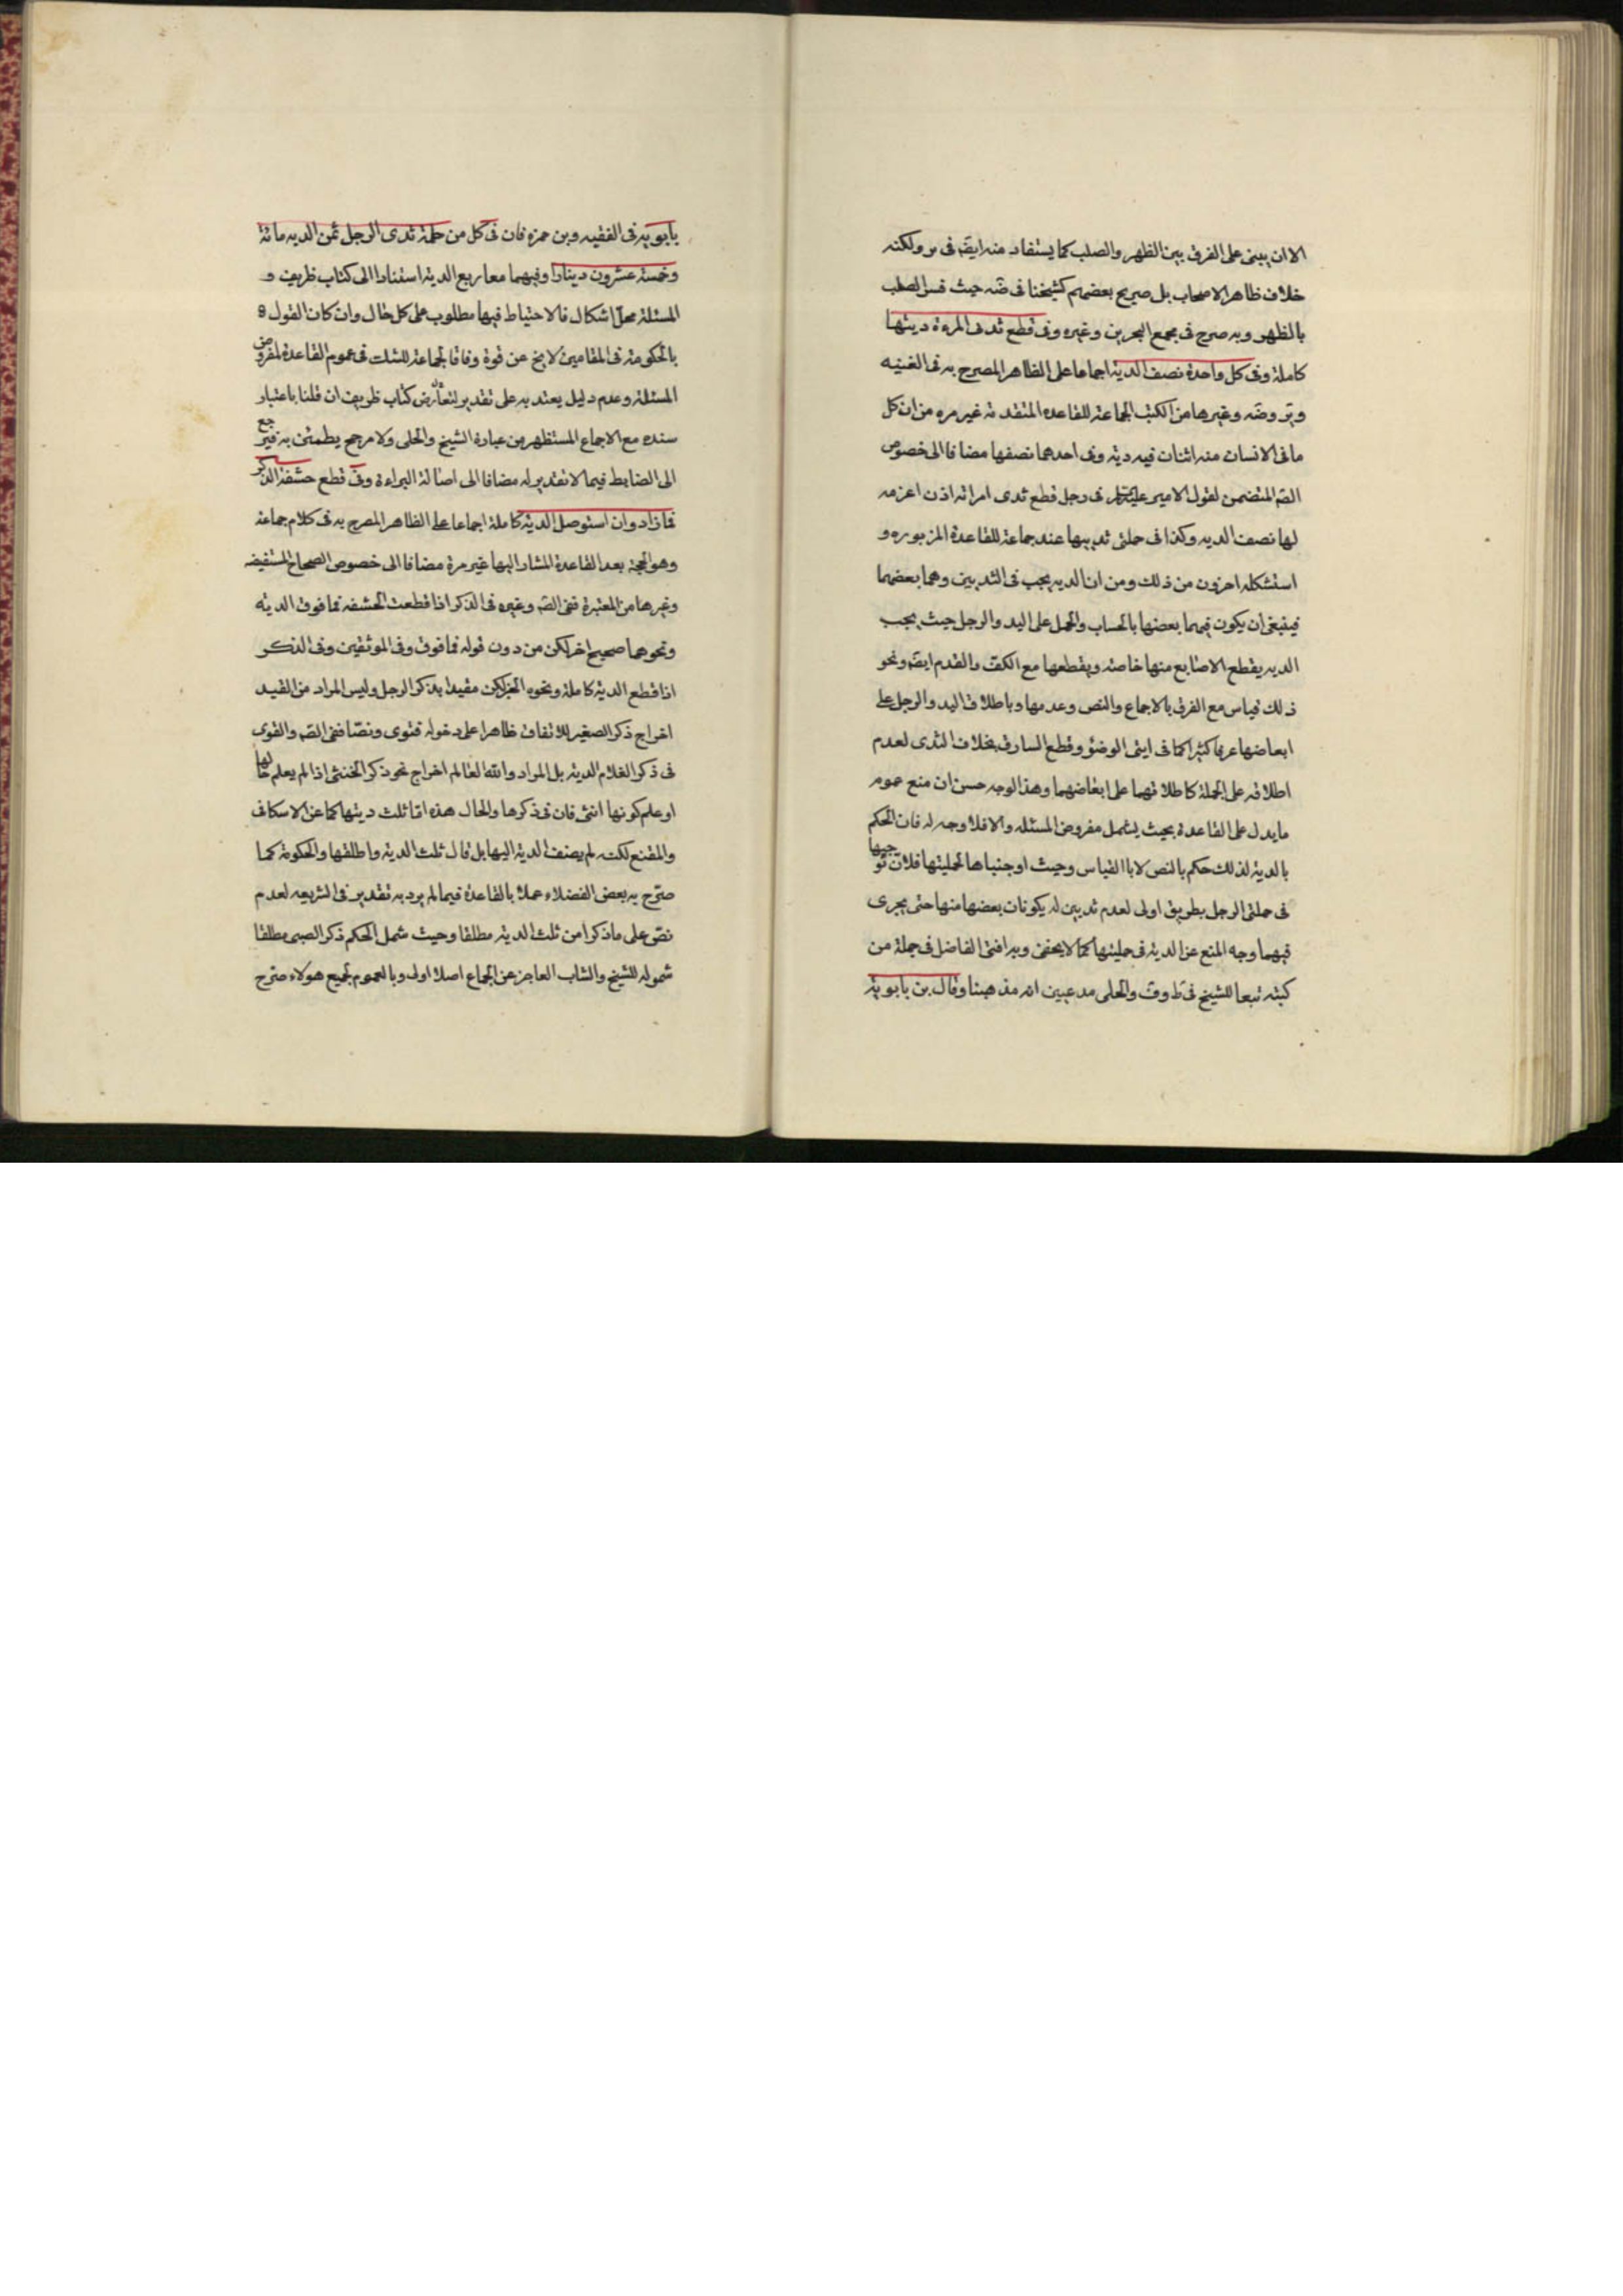 الا ان يبنى على الفرق بين الظهر والصلب كما يستفاد منه ايضا فى ير ولكنه
خلاف ظاهر الاصحاب بل صريح بعضهم كشيخنا فى ضه حيث فسر الصلب
بالظهر وبه صرح فى مجمع البحرين وغيره وفى قطع ثدى المرءة ديتها
كاملة وفى كل واحدة نصف الدية اجماعا على الظاهر المصرح به فى الغنيه
وير وضه وغيرها من الكتب الجماعة للقاعده المتقدمة غير مره من ان كل
ما فى الانسان منه اثنان فيه دية وفى احدهما نصفها مضافا الى خصوص
الصّ المتضمن لقول الامير عليه السلام فى رجل قطع ثدى امراته اذن اغرمه
لها نصف الديه وكذا فى حلمتى ثدييها عند جماعة للقاعدة المزبوره و
استشكله اخرون من ذلك ومن ان الديه يجب فى الثديين وهما بعضهما
فينبغى ان يكون فيهما بعضها بالحساب والحمل على اليد والرجل حيث يجب
الديه بقطع الاصابع منها خاصة وبقطعها مع الكف والقدم ايضا ونحو
ذلك قياس مع الفرق بالاجماع والنص وعدمها وباطلاق اليد والرجل على
ابعاضها عرفا كثيرا كما فى ايتى الوضؤ وقطع السارق بخلاف الثدى لعدم
اطلاقه على الجملة كاطلاقهما على ابعاضهما وهذا الوجه حسن ان منع عموم
ما يدل على القاعدة بحيث يشمل مفروض المسئله والا فلا وجه له فان الحكم
بالدية لذلك حكم بالنص لا باالقياس وحيث اوجبناها لحلمتيها فلان توجبها
فى حلمتى الرجل بطريق اولى لعدم ثديين له يكونان بعضها منها حتى يجرى
فيهما وجه المنع عن الدية فى حلمتيها كما لا يخفى وبه افتى الفاضل فى جملة من
كتبه تبعا للشيخ فى ط وف والحلى مدعيين انه مذهبنا وقال بن بابويه
بابويه فى الفقيه وبن حمزه فان فى كل من حلمة ثدى الرجل ثمن الديه مائة
وخمسة عشرون دينارا وفيهما معا ربع الدية استنادا الى كتاب ظريف و
المسئلة محل اشكال فالاحتياط فيها مطلوب على كل حال وان كان القول
بالحكومة فى المقامين لا يخ عن قوة وفاقا لجماعة للشك فى عموم القاعدة لمفروض
المسئلة وعدم دليل يعتد به على تقدير لتعارض كتاب ظريف ان قلنا باعتبار
سنده مع الاجماع المستظهر من عبارة الشيخ والحلى ولا مرجح يطمئن به فيرجع
الى الضابط فيما لا تقدير له مضافا الى اصالة البراءة وفى قطع حشفة الذكر
فما زاد وان استوصل الدية كاملة اجماعا على الظاهر المصرح به فى كلام جماعة
وهو الحجة بعد القاعدة المشار اليها غير مرة مضافا الى خصوص الصحاح المستفيضه
وغيرها من المعتبرة ففى الصّ وغيره فى الذكر اذا قطعت الحشفه فما فوق الديه
ونحوهما صحيح اخر لكن من دون قوله فما فوق وفى الموثقين وفى الذكر
اذا قطع الدية كاملة ونحوه الخبر لكن مقيدا بذكر الرجل وليس المراد من القيد
اخراج ذكر الصغير للاتفاق ظاهرا على دخوله فتوى ونصّا ففى الصّ والقوى
فى ذكر الغلام الدية بل المراد والله العالم اخراج نحو ذكر الخنثى اذا لم يعلم حالها
او علم كونها انثى فان فى ذكرها والحال هذه اما ثلث ديتها كما عن الاسكافى
والمقنع لكنه لم يضف الدية اليها بل قال ثلث الدية واطلقها والحكومة كما
صرّح به بعض الفضلاء عملا بالقاعدة فيما لم يرد به تقدير فى الشريعه لعدم
نصّ على ما ذكرا من ثلث الديه مطلقا وحيث شمل الحكم ذكر الصبى مطلقا
شموله للشيخ والشاب العاجز عن الجماع اصلا اولى وبالعموم لجميع هولاء صرّح